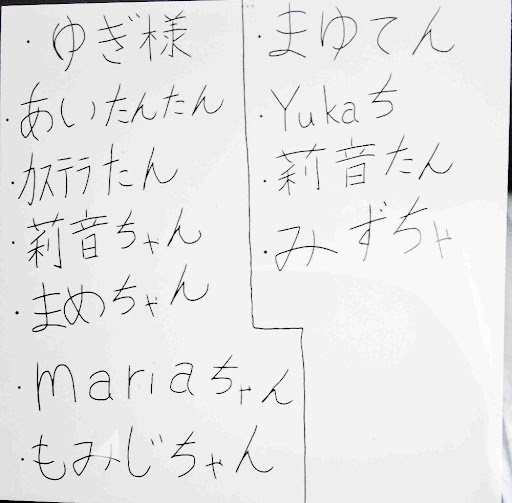 ・ゆぎ様
・あいたんたん
・カステラたん
・莉音ちゃん
・まめちゃん
・mariaちゃん
・もみじちゃん
・まゆてん
・Yukaち
・莉音たん
・みずちゃ